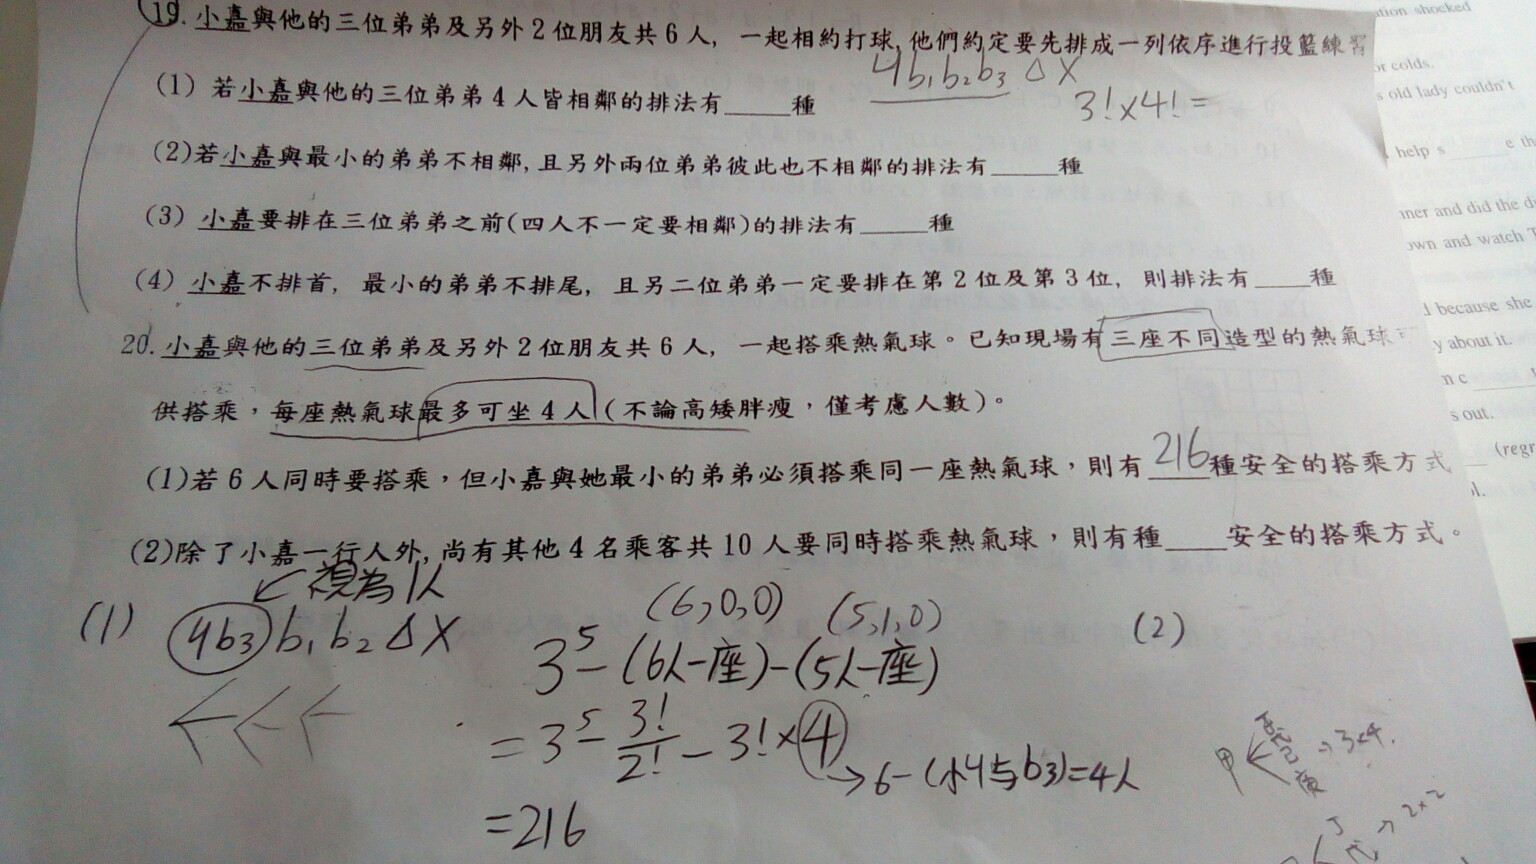 19. 小嘉與他的三位弟弟及另外2位朋友共6人, 一起相約打球, 他們約定要先排成一列依序進行投籃練習
4b₁b₂b₃ △ X
3!×4!=
(1) 若小嘉與他的三位弟弟4人皆相鄰的排法有_____種
(2)若小嘉與最小的弟弟不相鄰, 且另外兩位弟弟彼此也不相鄰的排法有_____種
(3) 小嘉要排在三位弟弟之前(四人不一定要相鄰)的排法有_____種
(4) 小嘉不排首, 最小的弟弟不排尾, 且另二位弟弟一定要排在第2位及第3位, 則排法有____種
20. 小嘉與他的三位弟弟及另外2位朋友共6人, 一起搭乘熱氣球。已知現場有三座不同造型的熱氣球
供搭乘,每座熱氣球最多可坐4人(不論高矮胖瘦,僅考慮人數)。
(1)若6人同時要搭乘,但小嘉與她最小的弟弟必須搭乘同一座熱氣球,則有216種安全的搭乘方式
(2)除了小嘉一行人外, 尚有其他4名乘客共10人要同時搭乘熱氣球,則有種____安全的搭乘方式。
←視為1人
(1) 4b₃ b₁ b₂ △ X
(6,0,0) (5,1,0)
3⁵-(6人一座)-(5人一座)
=3⁵-3!/2!-3!×4
→6-(小4与b₃)=4人
=216
(2)
甲
→3×4.
→2×2
tion shocked
or colds.
s old lady couldn't
help s_____e th
nner and did the di
own and watch T
because she
y about it.
n c
s out.
(regr